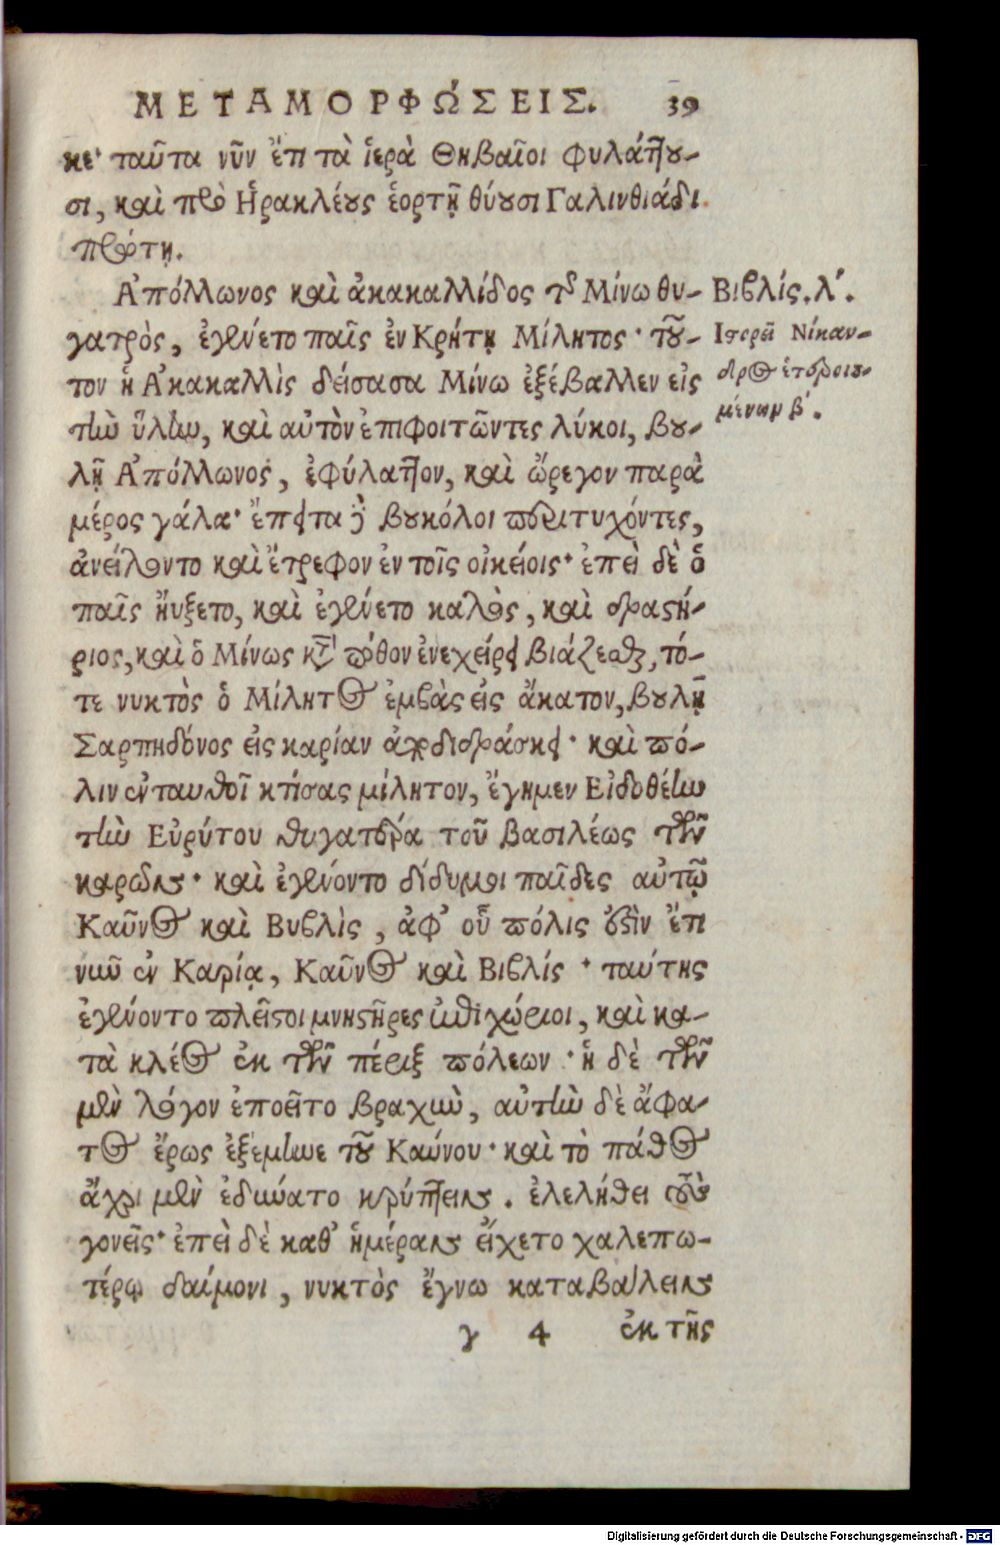 ΜΕΤΑΜΟΡΦΏΣΕΙΣ. 39
κε· ταῦτα νῦν ἔτι τὰ ἱερὰ Θηβαῖοι φυλάττου-
σι, καὶ πρὸ Ἡρακλέους ἑορτῇ θύουσι Γαλινθιάδι
πρώτῃ.
Ἀπόλλωνος καὶ ἀκακαλλίδος τῆς Μίνω θυ-
γατρὸς, ἐγένετο παῖς ἐν Κρήτῃ Μίλητος· τοῦ-
τον ἡ Ἀκακαλλὶς δείσασα Μίνω ἐξέβαλλεν εἰς
τὴν ὕλην, καὶ αὐτὸν ἐπιφοιτῶντες λύκοι, βου-
λῇ Ἀπόλλωνος, ἐφύλαττον, καὶ ὤρεγον παρὰ
μέρος γάλα· ἔπειτα δὲ βουκόλοι περιτυχόντες,
ἀνείλοντο καὶ ἔτρεφον ἐν τοῖς οἰκείοις· ἐπεὶ δὲ ὁ
παῖς ηὔξετο, καὶ ἐγένετο καλὸς, καὶ δραστή-
ριος, καὶ ὁ Μίνως κατὰ πόθον ἐνεχείρει βιάζεσθαι, τό-
τε νυκτὸς ὁ Μίλητος ἐμβὰς εἰς ἄκατον, βουλῇ
Σαρπηδόνος εἰς καρίαν ἀποδιδράσκει· καὶ πό-
λιν ἐνταυθοῖ κτίσας μίλητον, ἔγημεν Εἰδοθέην
τὴν Εὐρύτου θυγατέρα τοῦ βασιλέως τῶν
καρῶν· καὶ ἐγένοντο δίδυμοι παῖδες αὐτῷ
Καῦνος καὶ Βυβλὶς, ἀφ’ οὗ πόλις ἐστὶν ἔτι
νῦν ἐν Καρίᾳ, Καῦνος καὶ Βιβλίς· ταύτης
ἐγένοντο πλεῖστοι μνηστῆρες ἐπιχώριοι, καὶ κα-
τὰ κλέος ἐκ τῶν πέριξ πόλεων· ἡ δὲ τῶν
μὲν λόγον ἐποεῖτο βραχὺν, αὐτὴν δὲ ἄφα-
τος ἔρως ἐξέμηνε τοῦ Καύνου· καὶ τὸ πάθος
ἄχρι μὲν ἐδύνατο κρύπτειν. ἐλελήθει τοὺς
γονεῖς· ἐπεὶ δὲ καθ’ ἡμέραν εἴχετο χαλεπω-
τέρῳ δαίμονι, νυκτὸς ἔγνω καταβαλεῖν
γ 4 ἐκ τῆς
Βιβλίς. λʹ.
Ἱστορεῖ Νίκαν-
δρος ἑτεροιου-
μένων βʹ.
Digitalisierung gefördert durch die Deutsche Forschungsgemeinschaft - DFG